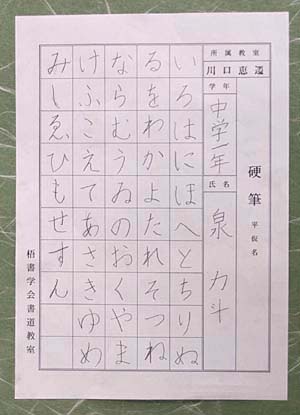 硬筆 平仮名
所属教室
川口恵
学年
中学一年
氏名
泉 力斗
いろはにほへとちりぬ
るをわかよたれそつね
ならむうゐのおくやま
けふこえてあさきゆめ
みしゑひもせすん
梧書学会書道教室